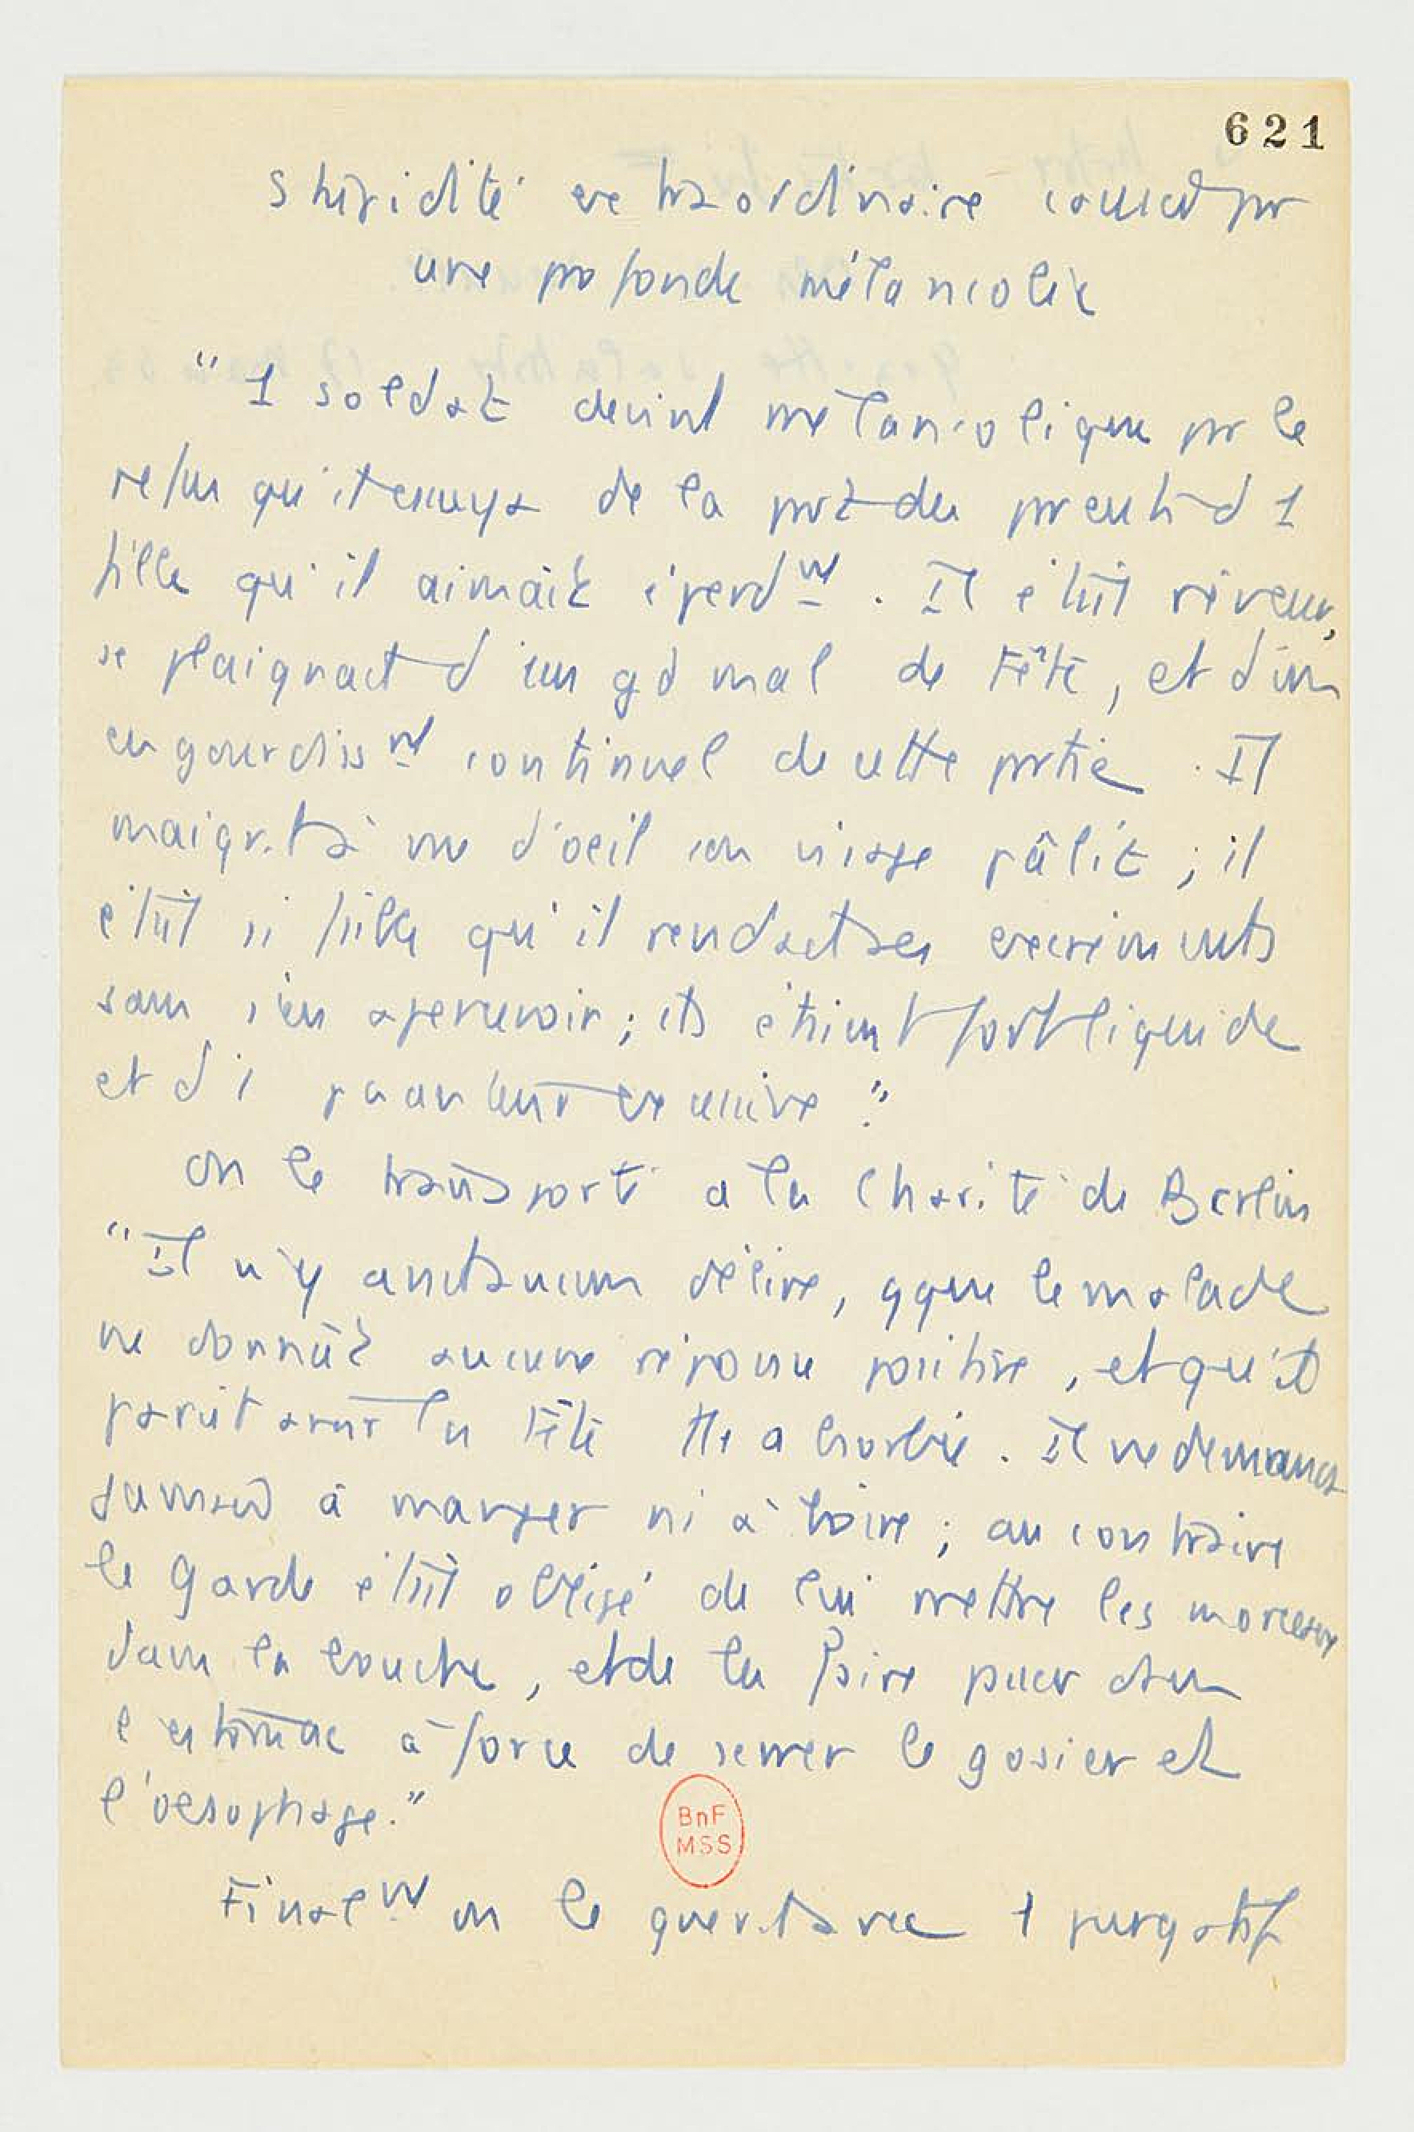 621
stupidité extraordinaire causée par
une profonde mélancolie
"1 soldat devint mélancolique par le
refus qu'il essuya de la part des parents d 1
fille qu'il aimait éperdmt. Il était rêveur,
se plaignait d'un gd mal de tête, et d'un
engourdissmt continuel de cette partie. Il
maigrit à vue d'oeil son visage pâlit ; il
était si faible qu'il rendait ses excréments
sans s'en apercevoir ; ils étaient fort liquide
et d'1 puanteur excessive."
On le transporte à la Charité de Berlin
"Il n'y avait aucun délire, qque le malade
ne donnât aucune réponse positive, et qu'il
parut avoir la tête tt absorbée. Il ne demanda
jamais à manger ni à boire ; au contraire
le garde était obligé de lui mettre les morceaux
dans la bouche, et de les faire passer dans
l'estomac à force de serrer le gosier et
l'oesophage."
BnF
MSS
Finalmt on le guérit avec 1 purgatif